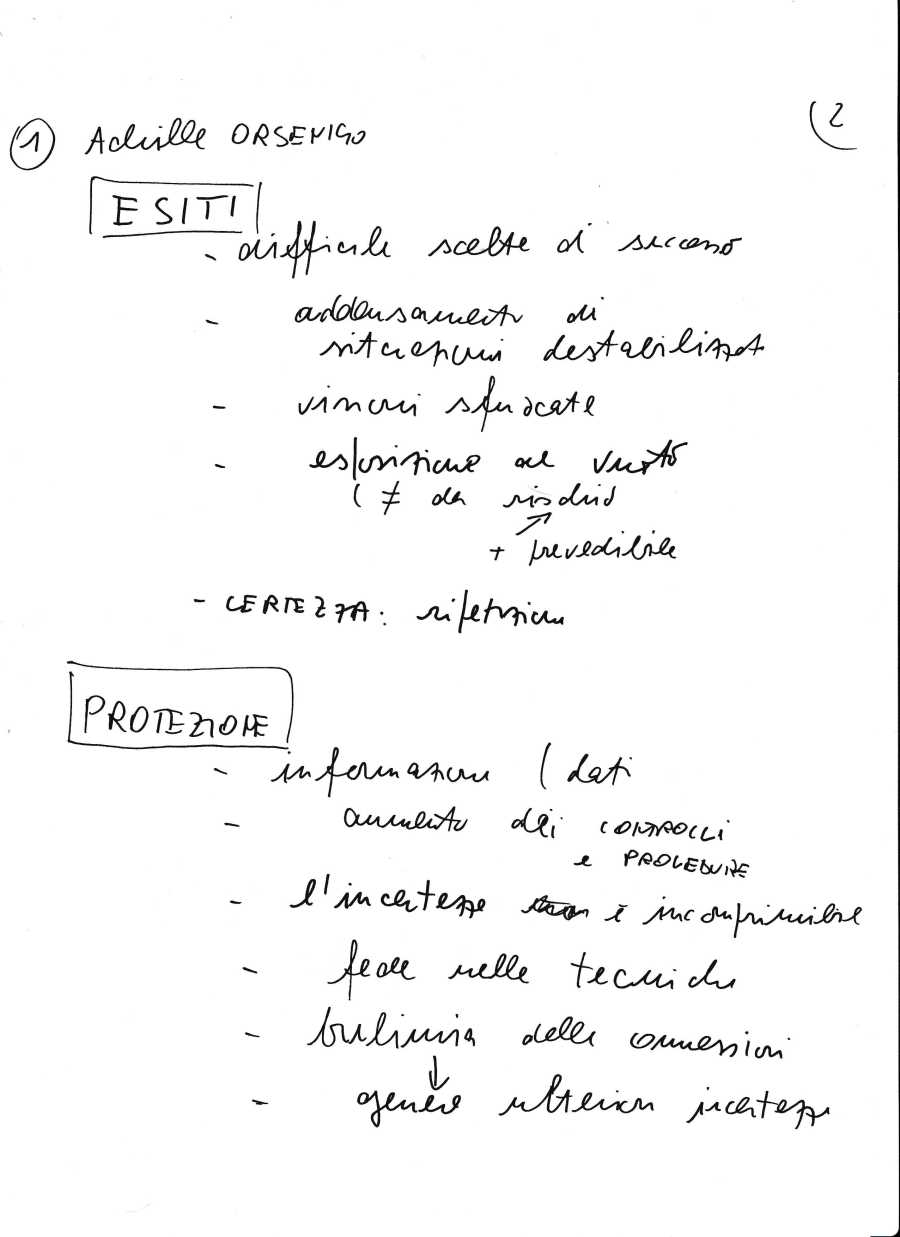 (2
1 Achille ORSENIGO
ESITI
- difficile scelte di successo
- addensamento di
situazioni destabilizzat
- visioni sfuocate
- esposizione al vuoto
( ≠ da rischio
+ prevedibile
- CERTEZZA: ripetizion
PROTEZIONE
- informazioni ( dati
- aumento dei CONTROLLI
e PROCEDURE
- l'incertezza è incomprimibile
- fede nelle tecniche
- bulimia delle connessioni
↓
- genera ulteriori incertezze